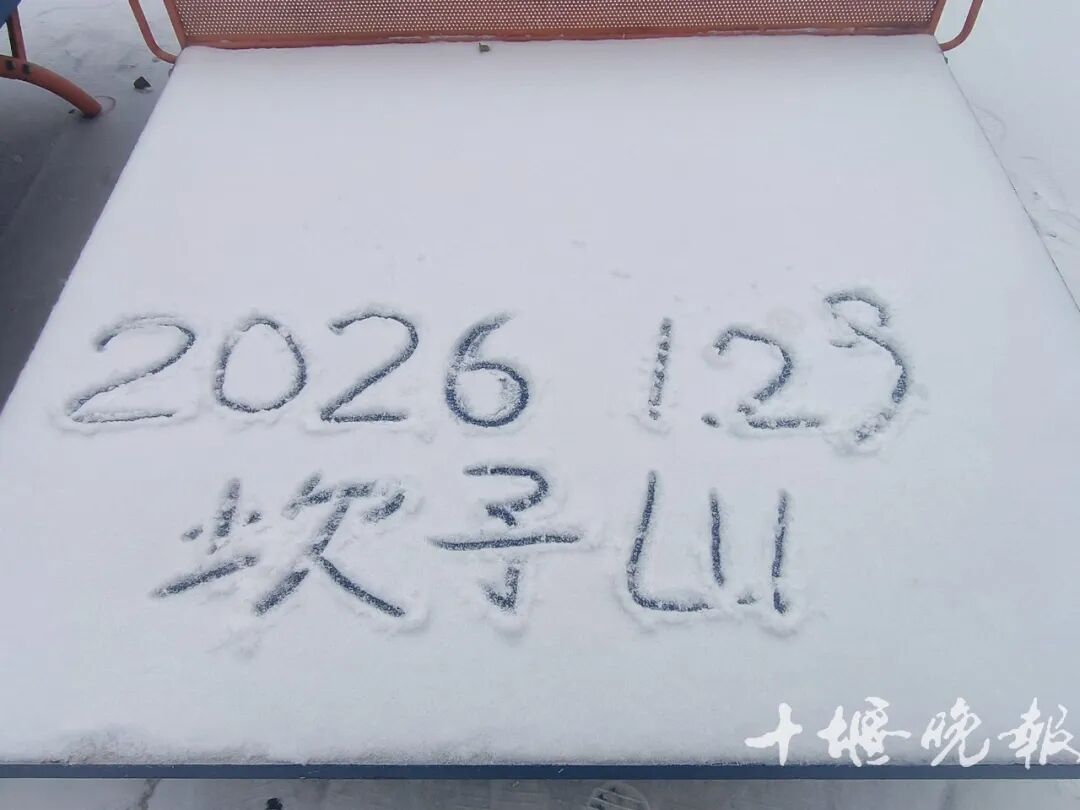 2026 1.23
坎子山
十堰晚报